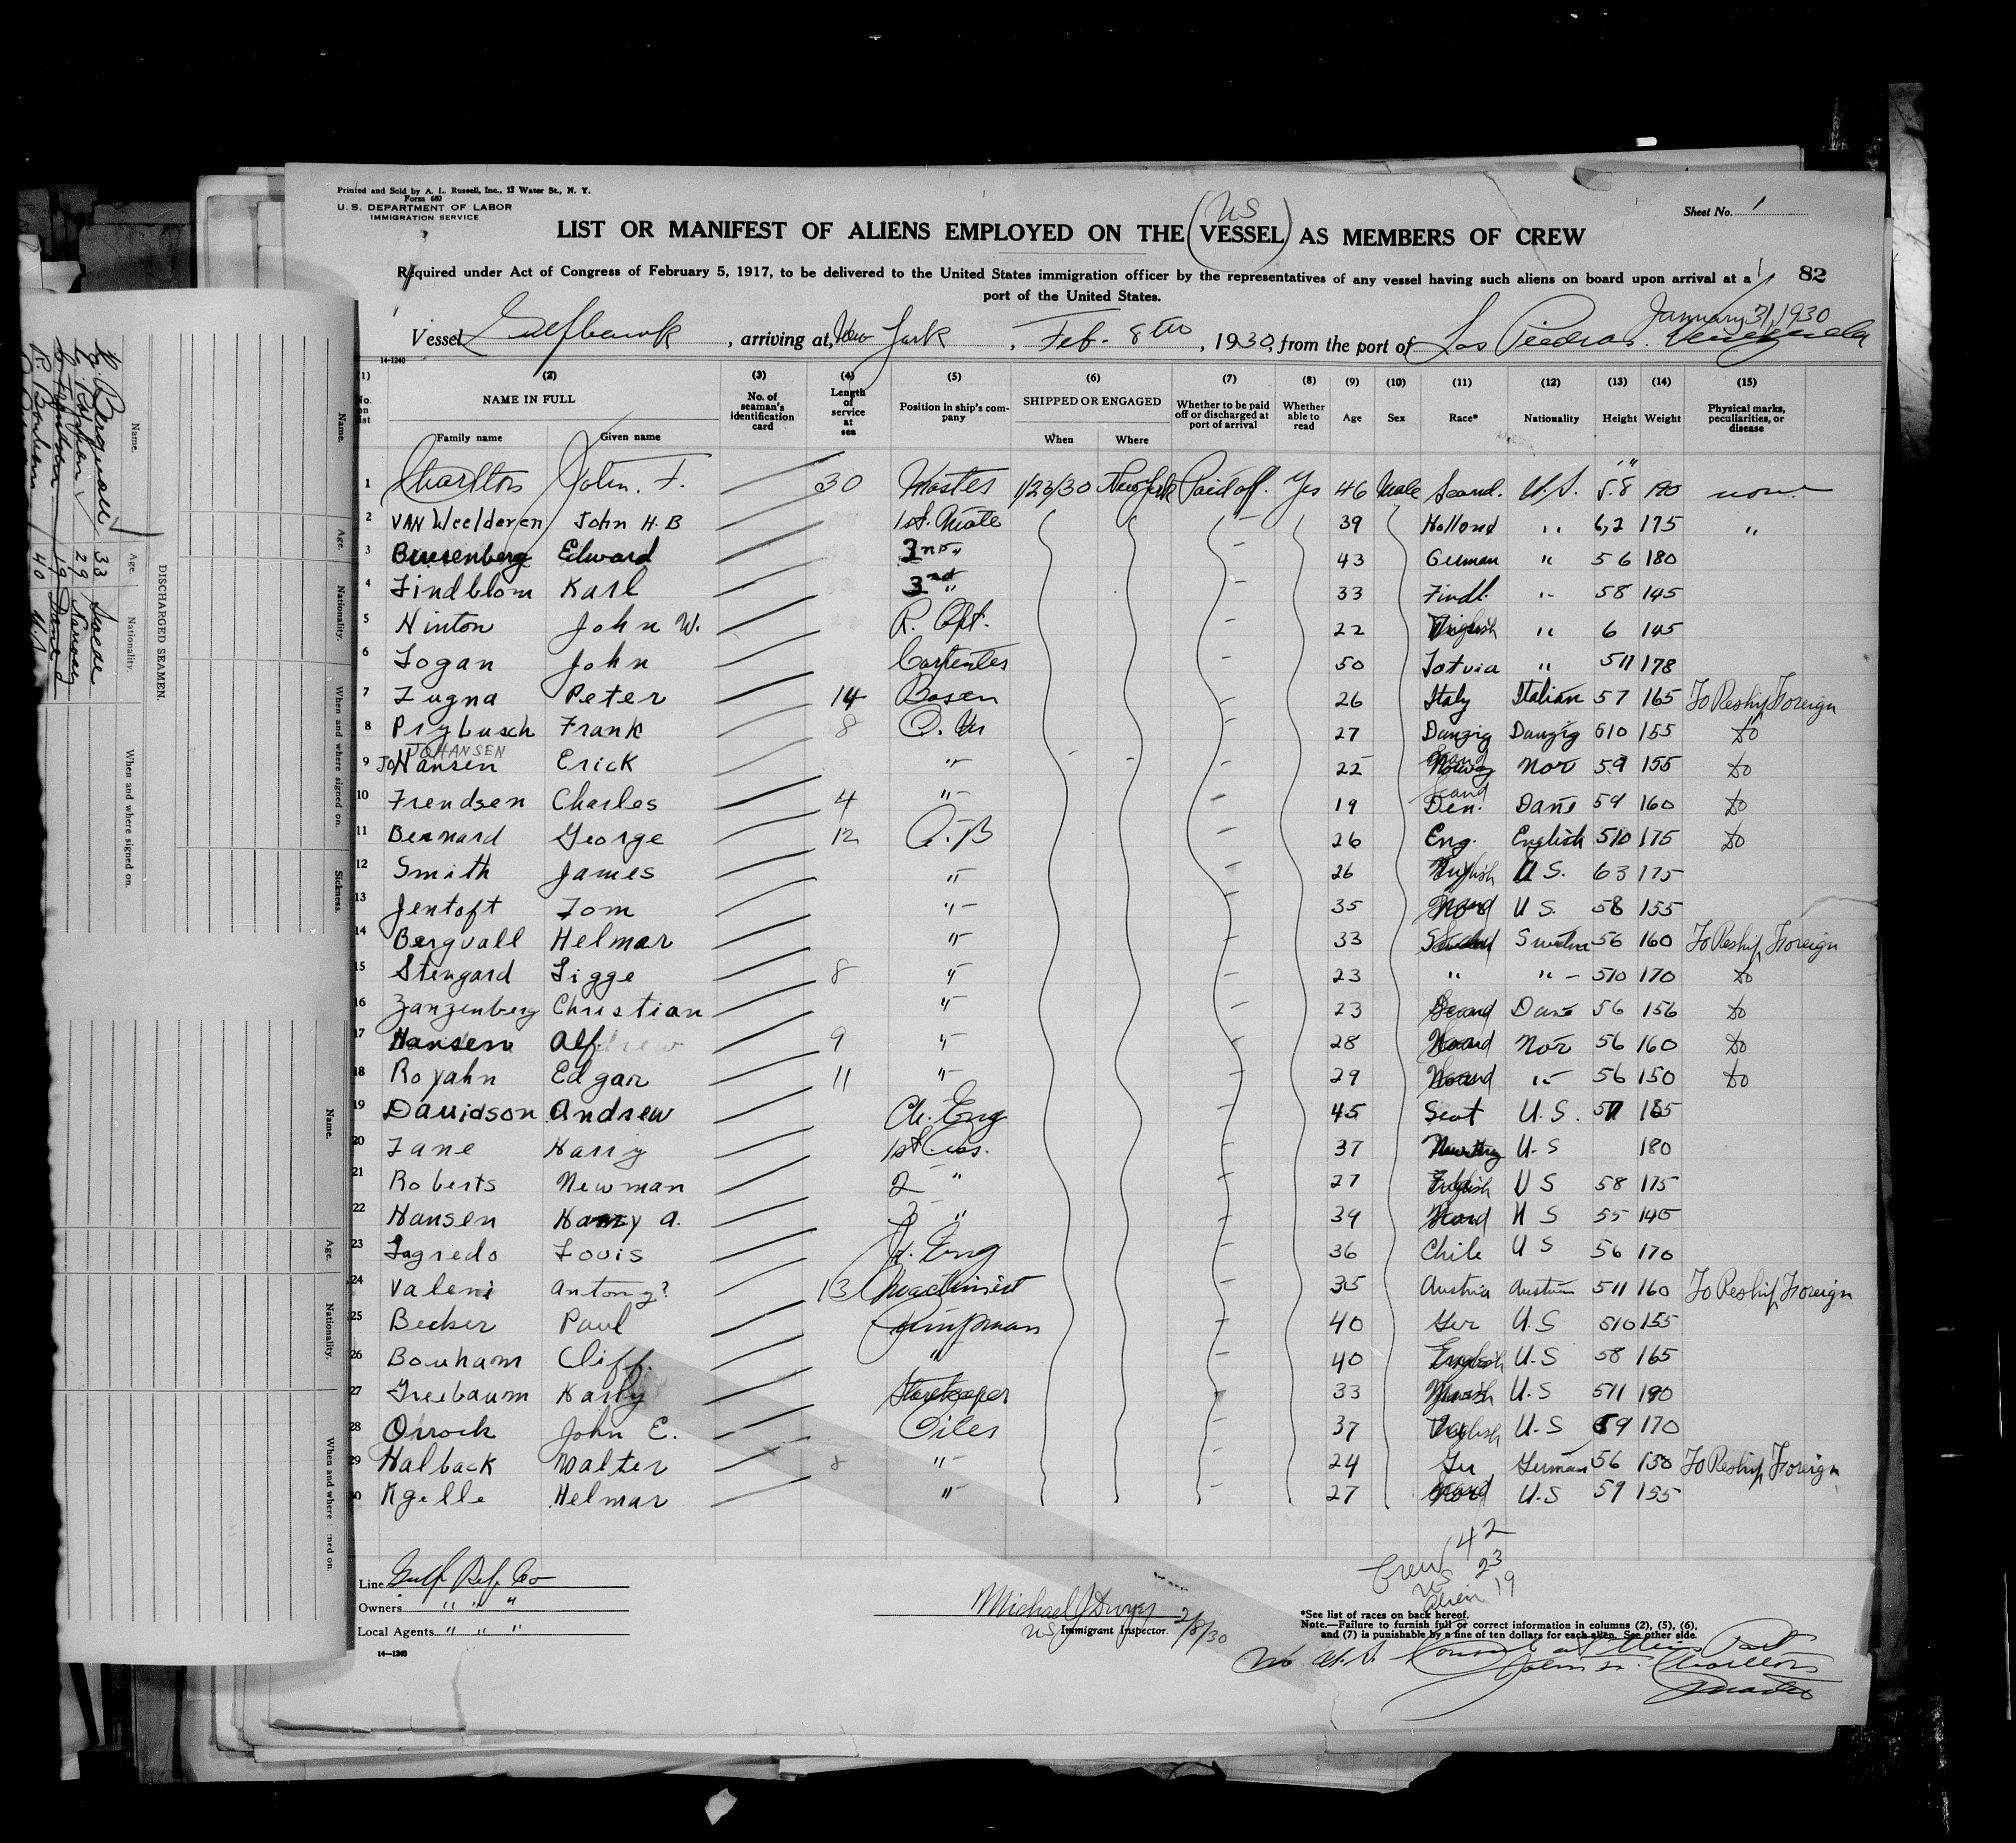 Printed and Sold by A. L. Russell, Inc., 13 Water St., N. Y.
Form 680
U. S. DEPARTMENT OF LABOR
IMMIGRATION SERVICE
Sheet No. 1
US
LIST OR MANIFEST OF ALIENS EMPLOYED ON THE (VESSEL) AS MEMBERS OF CREW
Required under Act of Congress of February 5, 1917, to be delivered to the United States immigration officer by the representatives of any vessel having such aliens on board upon arrival at a
port of the United States.
82
January 31, 1930
Vessel Gulfhawk, arriving at New York, Feb. 8th, 1930, from the port of Las Piedras. Venezuela
14-1240
(1) (2) (3) (4) (5) (6) (7) (8) (9) (10) (11) (12) (13) (14) (15)
No. on list NAME IN FULL Family name Given name No. of seaman's identification card Length of service at sea Position in ship's company SHIPPED OR ENGAGED When Where Whether to be paid off or discharged at port of arrival Whether able to read Age Sex Race* Nationality Height Weight Physical marks, peculiarities, or disease
1 Charlton John. F. 30 Master 1/23/30 New York Paid off. Yes 46 Male Scand. U.S. 5.8 none
2 VAN Weelderen John H. B 1st. Mate 39 Holland " 6,2 175 "
3 Buesenberg Edward 2nd " 43 German " 5 6 180
4 Lindblom Karl 3rd " 33 Findl. " 58 145
5 Hinton John W. R. Opt. 22 English " 6 145
6 Logan John Carpenter 50 Latvia " 511 178
7 Lugna Peter 14 Bosen 26 Italy Italian 57 165 To Reship Foreign
8 Prybusch Frank 8 Q. Mr 27 Danzig Danzig 510 155 Do
JOHANSEN
9 JoHansen Erick " 22 Nor 59 155 Do
10 Frendsen Charles 4 " 19 Scand Den. Dane 59 160 Do
11 Bernard George 12 A.B 26 Eng. English 510 175 Do
12 Smith James " 26 English U S. 63 175
13 Jentoft Tom " 35 Scand U S. 58 155
14 Bergvall Helmar " 33 Sweden 56 160 To Reship Foreign
15 Stengard Sigge 8 " 23 " " 510 170 Do
16 Zanzenberg Christian " 23 Scand Dane 56 156 Do
17 Hansen Alf. 9 " 28 Scand Nor 56 160 Do
18 Royahn Edgar 11 " 29 Scand " 56 150 Do
19 Davidson Andrew Ch. Eng 45 Scot U.S. 165
20 Lane Harry 1st Ass. 37 U.S 180
21 Roberts Newman 2 " 27 English U S 58 175
22 Hansen Harry A. 3 " 39 Scand U S 55 145
23 Lagredo Louis Jr. Eng 36 Chile U S 56 170
24 Valeni Antony? 13 Machinist 35 Austria Austrian 511 160 To Reship Foreign
25 Becker Paul Pumpman 40 Ger U.S 510 155
26 Bonham Cliff. " 40 English U.S 58 165
27 Greebaum Karly Storekeeper 33 U.S 511 190
28 Orrock John E. Oiler 37 English U.S 59 170
29 Halback Walter 8 " 24 Ger German 56 130 To Reship Foreign
30 Kgelle Helmar " 27 Scand U.S 59 155
Crew 42
US 23
Alien 19
Line Gulf Ref. Co
Owners " " "
Local Agents " " "
14—1240
Michael J Dwyer 2/8/30
US Immigrant Inspector.
*See list of races on back hereof.
Note.—Failure to furnish full or correct information in columns (2), (5), (6),
and (7) is punishable by a fine of ten dollars for each alien. See other side.
No U.S. Consul at this Port
John F. Charlton
Master
DISCHARGED SEAMEN.
Name. Age. Nationality. When and where signed on.
33 Swede
29 Norway
19 Dane
Bonham 40 U.S
Name. Age. Nationality. When and where signed on. Sickness.
Name. Age. Nationality. When and where signed on.